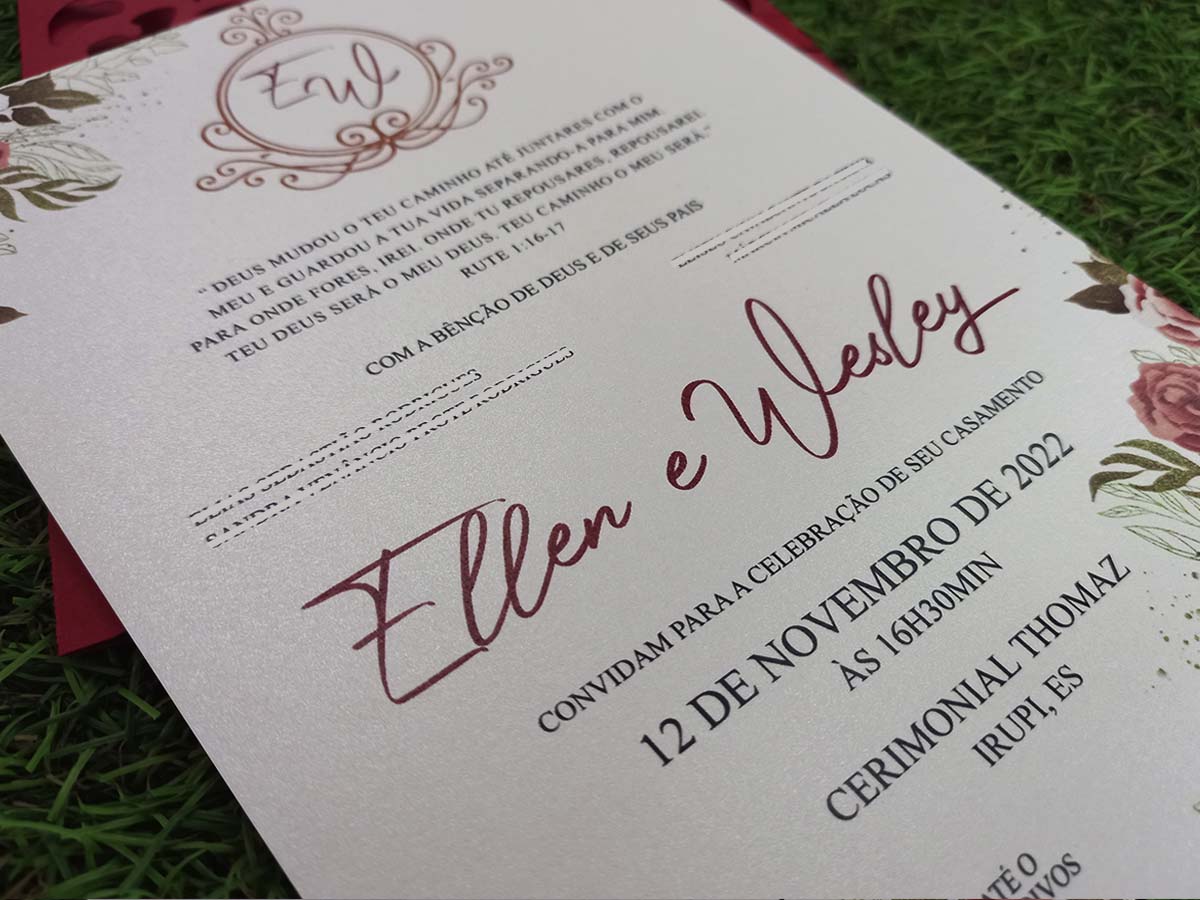 EW
"DEUS MUDOU O TEU CAMINHO ATÉ JUNTARES COM O
MEU E GUARDOU A TUA VIDA SEPARANDO-A PARA MIM
PARA ONDE FORES, IREI. ONDE TU REPOUSARES, REPOUSAREI.
TEU DEUS SERÁ O MEU DEUS. TEU CAMINHO O MEU SERÁ."
RUTE 1:16-17
COM A BÊNÇÃO DE DEUS E DE SEUS PAIS
Ellen e Wesley
CONVIDAM PARA A CELEBRAÇÃO DE SEU CASAMENTO
12 DE NOVEMBRO DE 2022
ÀS 16H30MIN
CERIMONIAL THOMAZ
IRUPI, ES
ATÉ O